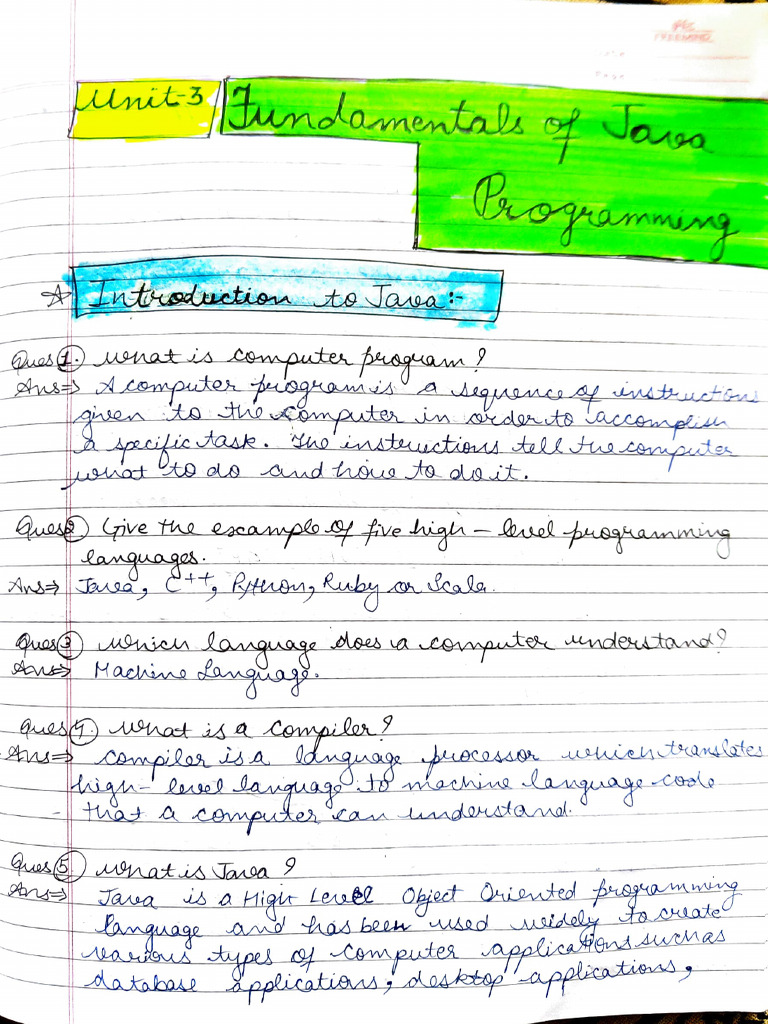 Unit-3 Fundamentals of Java
Programming
Introduction to Java:-
Ques 1. What is computer program?
Ans⇒ A computer program is a sequence of instructions
given to the computer in order to accomplish
a specific task. The instructions tell the computer
what to do and how to do it.
Ques 2 Give the example of five high-level programming
languages.
Ans⇒ Java, C++, Python, Ruby or Scala.
Ques 3 Which language does a computer understand?
Ans⇒ Machine Language.
Ques 4. What is a compiler?
Ans⇒ Compiler is a language processor which translates
high-level language to machine language code
that a computer can understand.
Ques 5 What is Java?
Ans⇒ Java is a High Level Object Oriented programming
language and has been used widely to create
various types of computer applications such as
database applications, desktop applications,